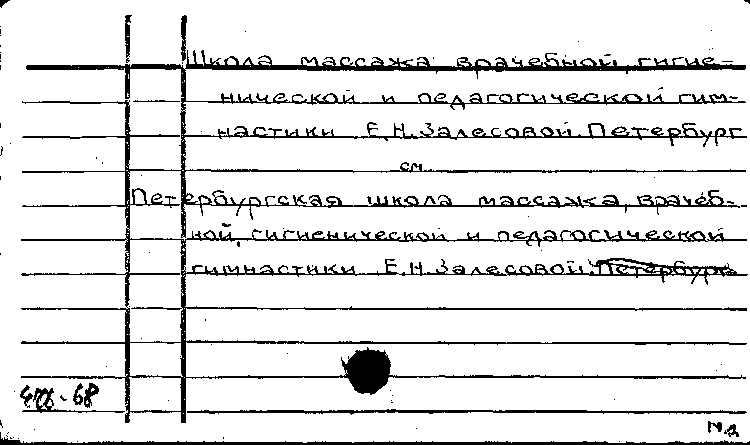 Школа массажа, врачебной, гигие-
нической и педагогической гим-
настики Е.Н. Залесовой. Петербург
см.
Петербургская школа массажа, врачеб-
ной, гигиенической и педагогической
гимнастики Е.Н. Залесовой.